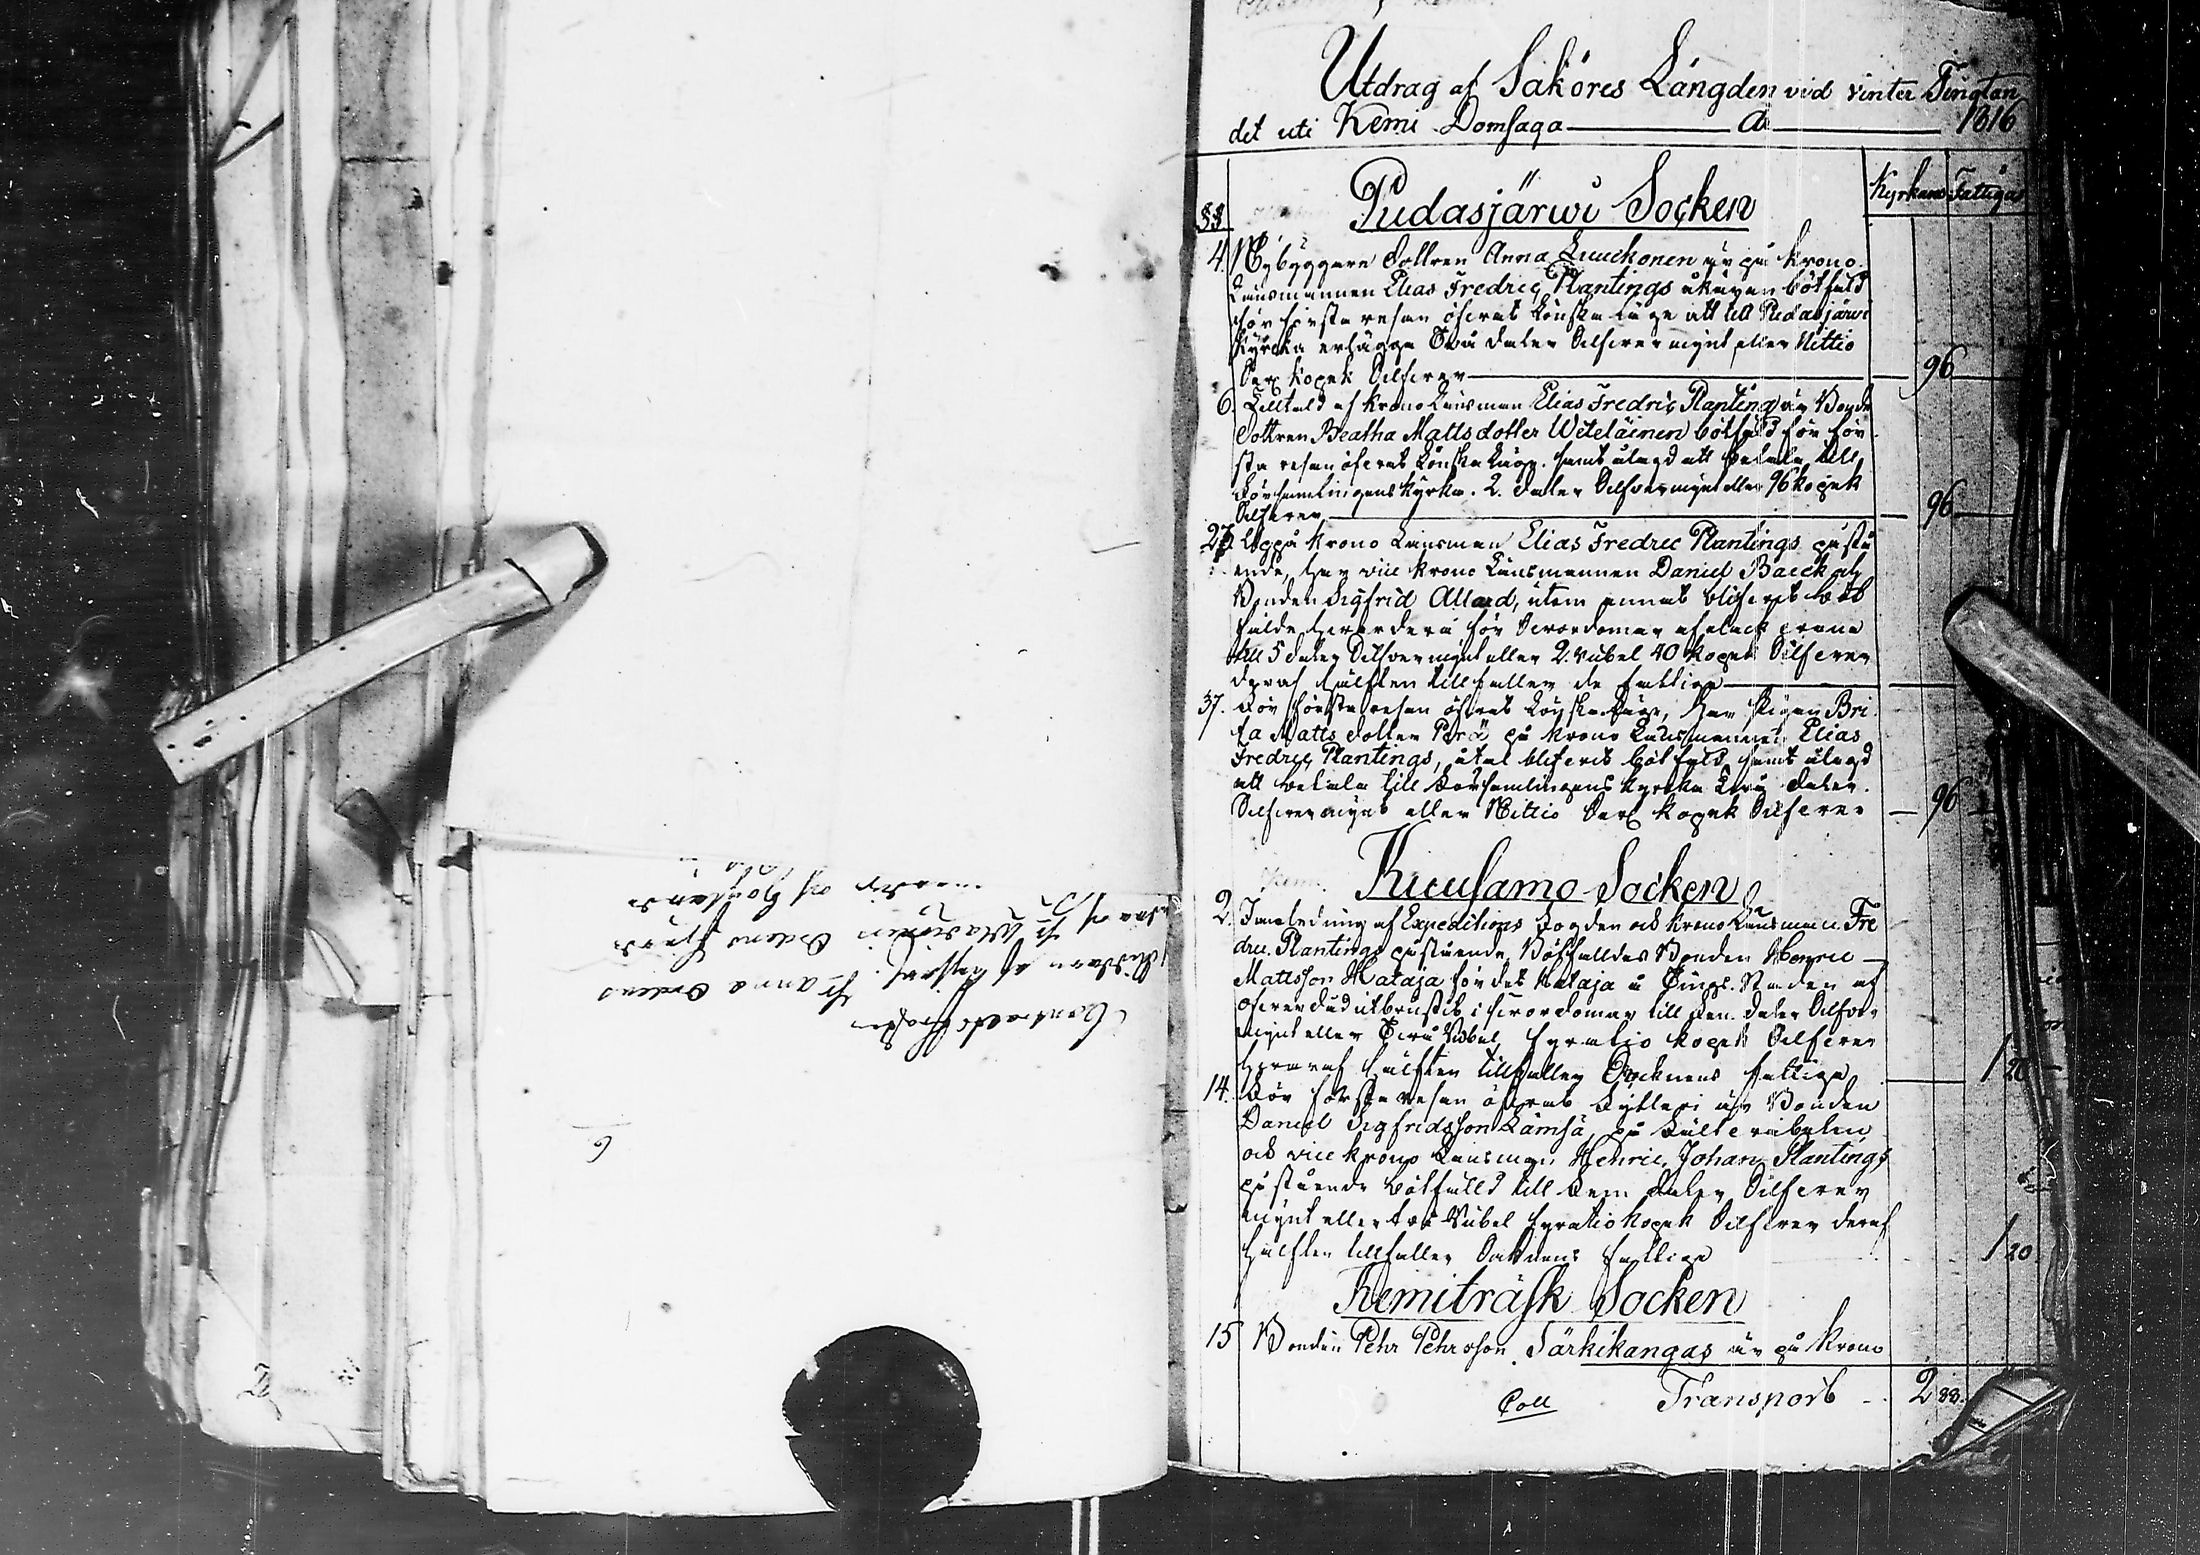 Contracts Prosten
Riddaren af Kejserl. St Anna Ordens
St Wladimir Ordens
6
Utdrag af Saköres Längden vid vinter Tingtan
det uti Kemi Domsaga A 1816
Kyrkans Fattigas
§§ Pudasjärwi Socken
4. Nybyggare Dottren Anna Luuckonen är på Krono
Länsmannen Elias Fredric Plantings åkäran bötfäld
för första resan öfvat Lönska läge att till Pudasjärwi
Kyrcka erlägga Två daler Silfvermynt eller Nittio
Sex Kopek Silfver 96
6. Tilltald af Krono Länsman Elias Fredric Planting är Bonde
Dottren Beatha Matts dotter Weteläinen bötfäld för för
sta resan öfvat Lönska läge, samt ålagd att betala till
Församlingens Kyrka 2. daler Silfvermynt eller 96 kopek
Silfver 96
27. Uppå Krono Länsman Elias Fredric Plantings påstå
ende, har vice Krono Länsmannen Daniel Baeck och
Bonden Sigfrid Allard, utom annat blifvit böt
fälde hvardera för
till 5 daler Silfvermynt eller 2. rubel 40 kopek Silfver
deraf hälften tillfaller de fattiga
37. För första resan öfvat Lönska läge, har Pigan Bri
ta Matts dotter Perä på Krono Länsmannen Elias
Fredric Plantings, åtal blifvit bötfäld samt ålagd
att betala till Församlingens Kyrcka Två daler
Silfvermynt eller Nittio Sex kopek Silfver 96
Kuusamo Socken
2. I anledning af Expeditions Fogden och Krono Länsman Fre
dric Plantings påstående, Bötfälldes Bonden Henric
Mattsson Hataja för det Hataja å Tings Staden af
till fem daler Silfver
mynt eller Två Rubel, fyratio kopek Silfver
hvaraf hälften tillfaller Socknens fattiga 1 20
14. För första resan öfvat fylleri är Bonden
Daniel Sigfridsson Lämsä, på
och vice Krono Länsman Henric Johan Plantings
påstående bötfälld till Fem daler Silfver
mynt eller två Rubel fyratio kopek Silfver deraf
hälften tillfaller Socknens fattiga 1 20
Kemiträsk Socken
15 Bonden Pehr Pehrsson Särkikangas är på Krono
Coll Transport 2 88.